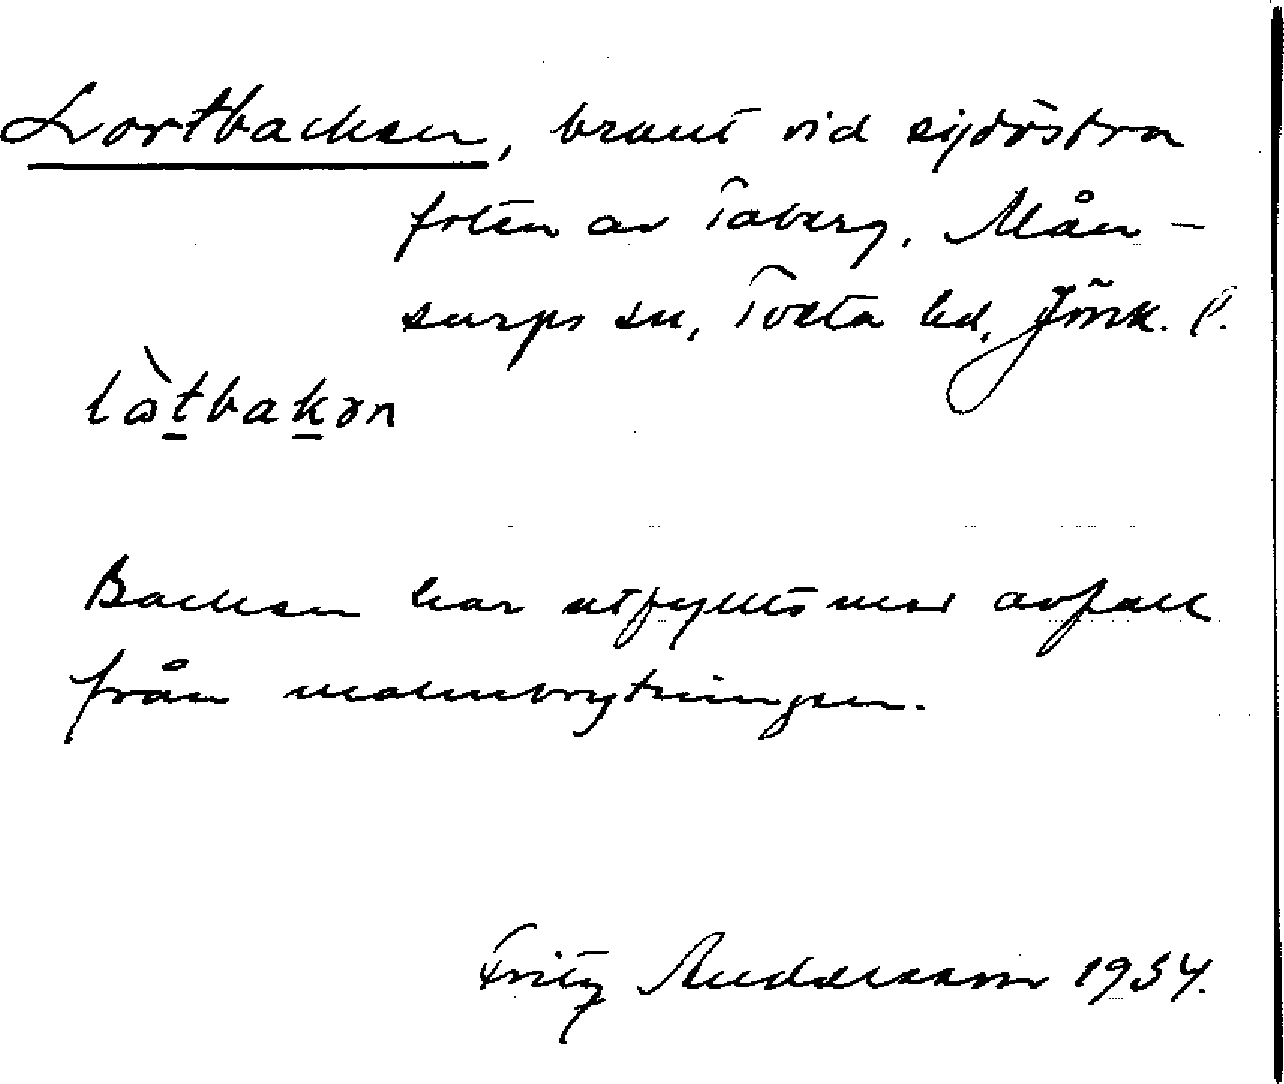 Lortbacken, brant vid sydöstra
foten av Taberg, Mån-
sarps sn, Tveta hd, Jönk. l.
lòtbakən
Backen har utfyllts med avfall
från malmbrytningen.
Fritz Andersson 1934.